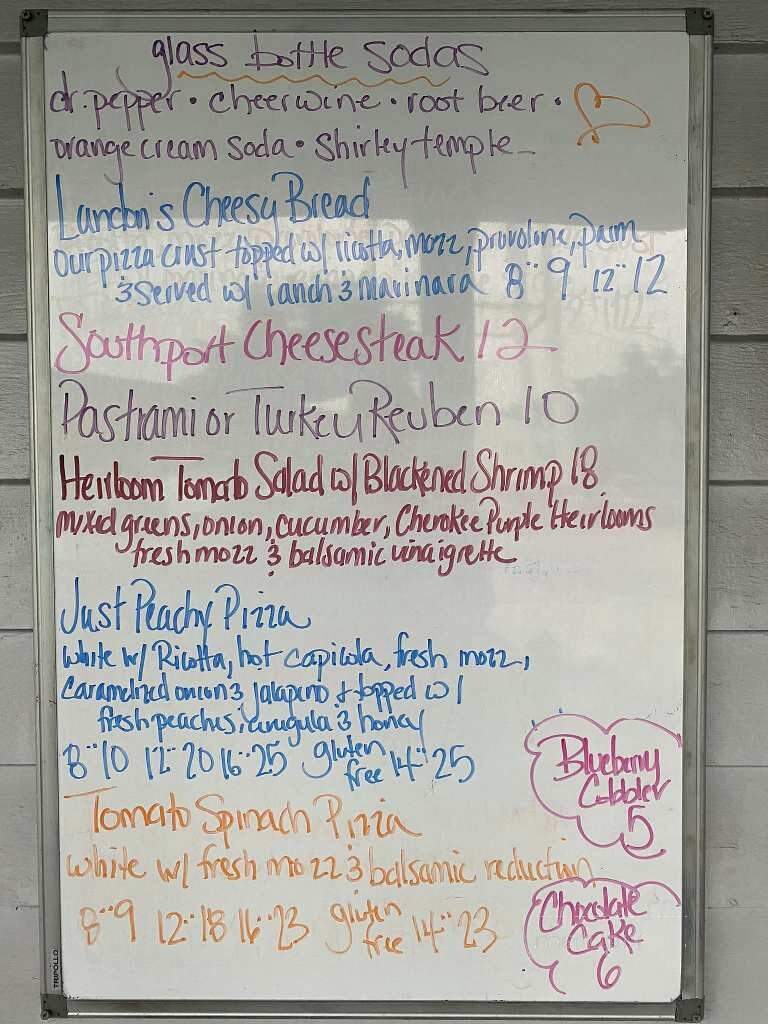 glass bottle sodas
dr. pepper • cheerwine • root beer •
orange cream soda • Shirley temple
Landon's Cheesy Bread
our pizza crust topped w/ ricotta, mozz, provolone, parm
& Served w/ ranch & marinara 8" 9 12" 12
Southport Cheesesteak 12
Pastrami or Turkey Reuben 10
Heirloom Tomato Salad w/ Blackened Shrimp 18
mixed greens, onion, cucumber, Cherokee Purple Heirlooms
fresh mozz & balsamic vinaigrette
Just Peachy Pizza
white w/ Ricotta, hot capicola, fresh mozz,
caramelized onion & jalapeno & topped w/
fresh peaches, arugula & honey
8" 10 12" 20 16" 25 gluten free 14" 25
Blueberry
Cobbler
5
Tomato Spinach Pizza
white w/ fresh mozz & balsamic reduction
8" 9 12" 18 16" 23 gluten free 14" 23
Chocolate
Cake
6
TRIPOLLO